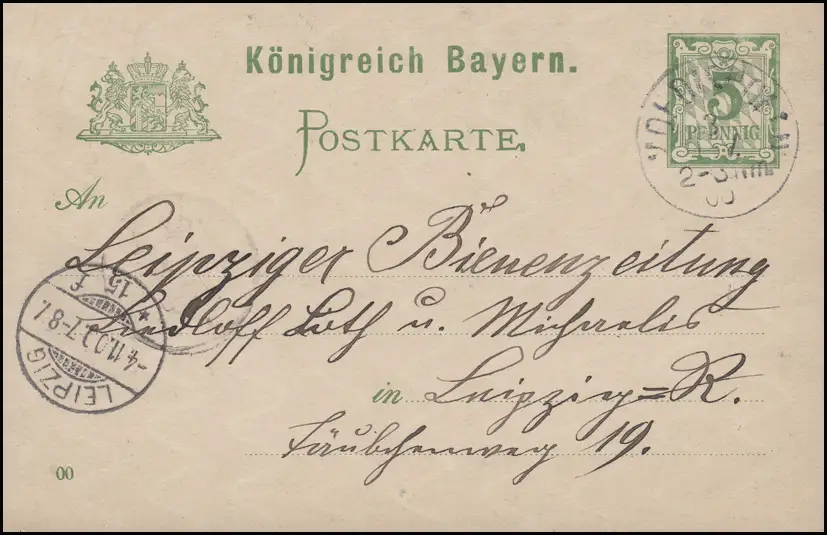 Königreich Bayern.
POSTKARTE.
5
PFENNIG
2-3 Nm
00
An
Leipziger Bienenzeitung
Liedloff Loth u. Michaelis
in Leipzig=R.
Täubchenweg 19.
LEIPZIG
15
-4.11.00.7-8V.
00